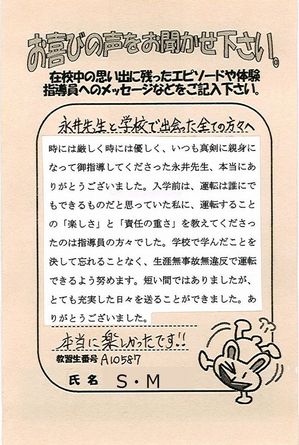 お喜びの声をお聞かせ下さい。
在校中の思い出に残ったエピソードや体験
指導員へのメッセージなどをご記入下さい。
永井先生と学校で出会った全ての方々へ
時には厳しく時には優しく、いつも真剣に親身に
なって御指導してくださった永井先生、本当にあ
りがとうございました。入学前は、運転は誰にで
もできるものだと思っていた私に、運転すること
の「楽しさ」と「責任の重さ」を教えてくださっ
たのは指導員の方々でした。学校で学んだことを
決して忘れることなく、生涯無事故無違反で運転
できるよう努めます。短い間ではありましたが、
とても充実した日々を送ることができました。あ
りがとうございました。
本当に楽しかったです!!
教習生番号 A10587
氏名 S・M